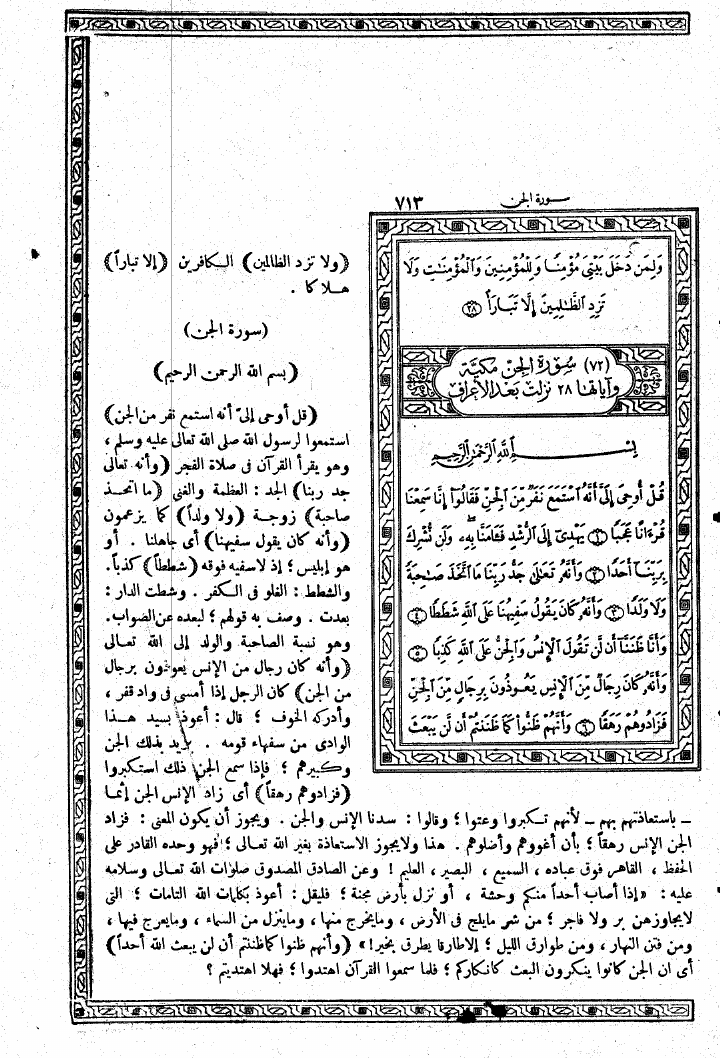 سورة الجن
٧١٣
وَلِمَن دَخَلَ بَيْتِيَ مُؤْمِنًا وَلِلْمُؤْمِنِينَ وَالْمُؤْمِنَٰتِ وَلَا
تَزِدِ الظَّٰلِمِينَ إِلَّا تَبَارًا ﴿٢٨﴾
(٧٢) سُورَة الجِنّ مَكيّة
وآياتها ٢٨ نزلت بَعد الأعراف
بِسْمِ اللَّهِ الرَّحْمَٰنِ الرَّحِيمِ
قُلْ أُوحِيَ إِلَيَّ أَنَّهُ اسْتَمَعَ نَفَرٌ مِّنَ الْجِنِّ فَقَالُوٓا إِنَّا سَمِعْنَا
قُرْءَانًا عَجَبًا ﴿١﴾ يَهْدِيٓ إِلَى الرُّشْدِ فَـَٔامَنَّا بِهِۦ وَلَن نُّشْرِكَ
بِرَبِّنَآ أَحَدًا ﴿٢﴾ وَأَنَّهُۥ تَعَٰلَىٰ جَدُّ رَبِّنَا مَا اتَّخَذَ صَٰحِبَةً
وَلَا وَلَدًا ﴿٣﴾ وَأَنَّهُۥ كَانَ يَقُولُ سَفِيهُنَا عَلَى اللَّهِ شَطَطًا ﴿٤﴾
وَأَنَّا ظَنَنَّآ أَن لَّن تَقُولَ الْإِنسُ وَالْجِنُّ عَلَى اللَّهِ كَذِبًا ﴿٥﴾
وَأَنَّهُۥ كَانَ رِجَالٌ مِّنَ الْإِنسِ يَعُوذُونَ بِرِجَالٍ مِّنَ الْجِنِّ
فَزَادُوهُمْ رَهَقًا ﴿٦﴾ وَأَنَّهُمْ ظَنُّوا كَمَا ظَنَنتُمْ أَن لَّن يَبْعَثَ
(ولا تزد الظالمين) الكافرين (إلا تباراً)
هلاكا .
(سورة الجن)
(بسم الله الرحمن الرحيم)
(قل أوحى إلىّ أنه استمع نفر من الجن)
استمعوا لرسول الله صلى الله تعالى عليه وسلم ،
وهو يقرأ القرآن فى صلاة الفجر (وأنه تعالى
جد ربنا) الجد : العظمة والغنى (ما اتخذ
صاحبة) زوجة (ولا ولداً) كما يزعمون
(وأنه كان يقول سفيهنا) أى جاهلنا . أو
هو إبليس ؛ إذ لاسفيه فوقه (شططاً) كذباً .
والشطط : الغلو فى الكفر . وشطت الدار :
بعدت . وصف به قولهم ؛ لبعده عن الصواب .
وهو نسبة الصاحبة والولد إلى الله تعالى
(وأنه كان رجال من الإنس يعوذون برجال
من الجن) كان الرجل إذا أمسى فى واد قفر ،
وأدركه الخوف ؛ قال : أعوذ بسيد هذا
الوادى من سفهاء قومه . يريد بذلك الجن
وكبيرهم ؛ فإذا سمع الجن ذلك استكبروا
(فزادوهم رهقاً) أى زاد الإنس الجن إثما
ـ باستعاذتهم بهم ـ لأنهم تكبروا وعتوا ؛ وقالوا : سدنا الإنس والجن . ويجوز أن يكون المعنى : فزاد
الجن الإنس رهقاً ؛ بأن أغووهم وأضلوهم . هذا ولايجوز الاستعاذة بغير الله تعالى ؛ فهو وحده القادر على
الحفظ ، القاهر فوق عباده ، السميع ، البصير ، العليم ! وعن الصادق المصدوق صلوات الله تعالى وسلامه
عليه : «إذا أصاب أحداً منكم وحشة ، أو نزل بأرض مجنة ؛ فليقل : أعوذ بكلمات الله التامات ؛ التى
لايجاوزهن بر ولا فاجر ؛ من شر مايلج فى الأرض ، ومايخرج منها ، وماينزل من السماء ، ومايعرج فيها ،
ومن فتن النهار ، ومن طوارق الليل ؛ إلا طارقا يطرق بخير!» (وأنهم ظنوا كما ظننتم أن لن يبعث الله أحداً)
أى ان الجن كانوا ينكرون البعث كانكاركم ؛ فلما سمعوا القرآن اهتدوا ؛ فهلا اهتديتم ؟